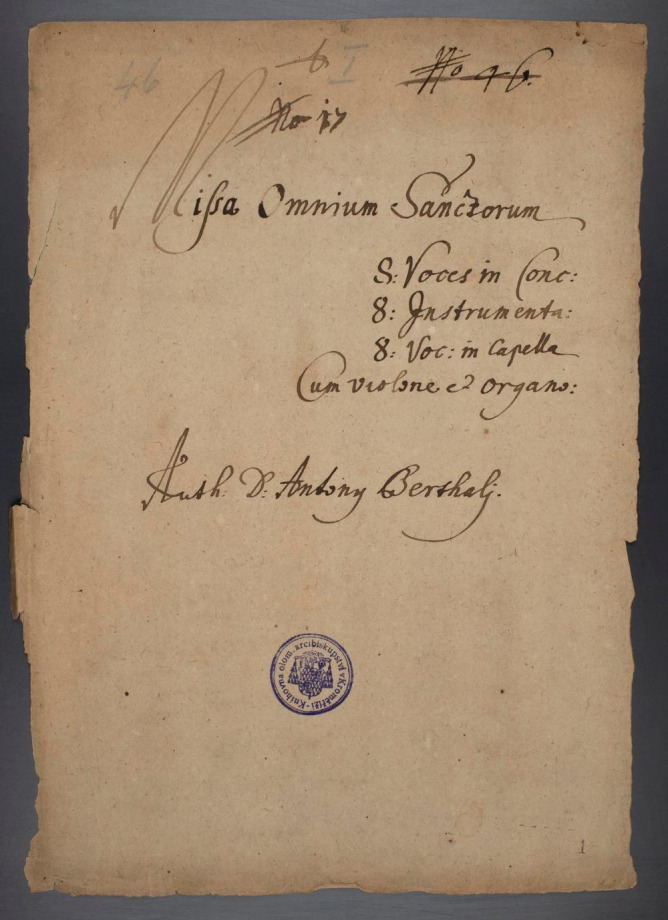 46
6 I
No 46.
No 17
Missa Omnium Sanctorum
8: Voces in Conc:
8: Instrumenta:
8: Voc: in Capella
Cum violone et organo:
Auth: D: Antony Berthalj.
Knihovna olom. arcibiskupství v Kroměříži
1